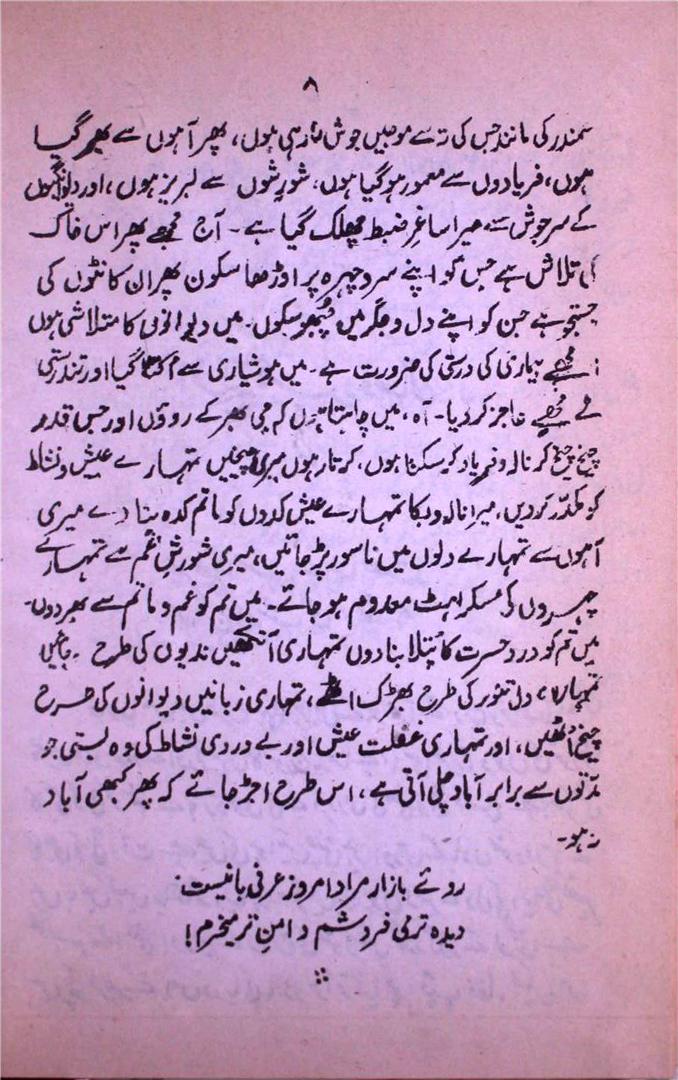 ۸
سمندر کی مانند جس کی تہ سے موجیں جوش مار رہی ہوں، پھر آہوں سے بھر گیا
ہوں، فریادوں سے معمور ہو گیا ہوں، شورشوں سے لبریز ہوں، اور دیوانگیوں
کے سرجوش سے میرا ساغرِ ضبط چھلک گیا ہے۔ آج مجھے پھر اس خاک
کی تلاش ہے جس کو اپنے سر و چہرہ پر اوڑھا سکوں پھر ان کانٹوں کی
جستجو ہے جن کو اپنے دل و جگر میں چُبھو سکوں۔ میں دیوانوں کا متلاشی ہوں
مجھے بیماری کی درستی کی ضرورت ہے۔ میں ہوشیاری سے اُکتا گیا اور تندرستی
نے مجھے عاجز کر دیا۔ آہ، میں چاہتا ہوں کہ جی بھر کے روؤں اور جس قدر
چیخ چیخ کر نالہ و فریاد کر سکتا ہوں، کرتا رہوں میری چیخیں تمہارے عیش و نشاط
کو مکدّر کر دیں، میرا نالہ و بکا تمہارے عیش کدوں کو ماتم کدہ بنا دے میری
آہوں سے تمہارے دلوں میں ناسور پڑ جائیں، میری شورشِ غم سے تمہارے
چہروں کی مسکراہٹ معدوم ہو جائے۔ میں تم کو غم و ماتم سے بھر دوں۔
میں تم کو درد و حسرت کا پُتلا بنا دوں تمہاری آنکھیں ندیوں کی طرح
تمہارا دل تنور کی طرح بھڑک اٹھے، تمہاری زبانیں دیوانوں کی طرح
چیخ اُٹھیں، اور تمہاری غفلت عیش اور بے دردی نشاط کی وہ بستی جو
مدّتوں سے برابر آباد چلی آتی ہے، اس طرح اجڑ جائے کہ پھر کبھی آباد
نہ ہو۔
روئے بازار مراد امروز عرفی با نیست
دیدہ تر می فروشم دامنِ تر میخرم!